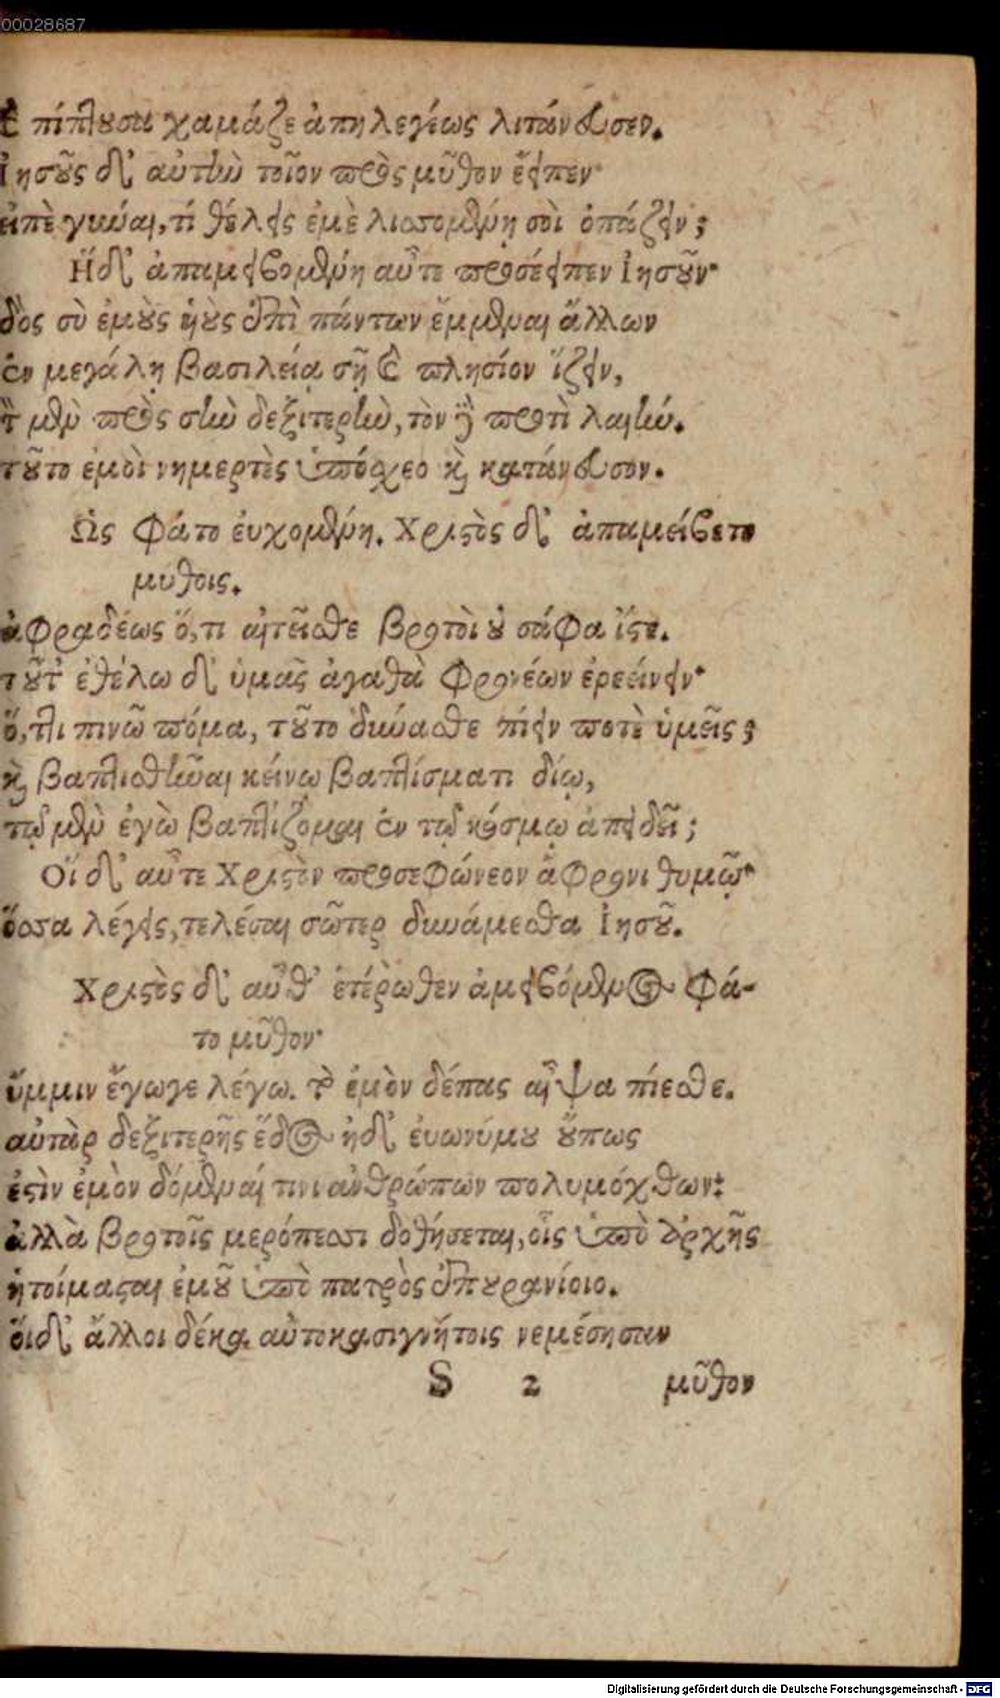 00028687
καὶ πίπτουσα χαμάζε ἀπηλεγέως λιτάνευσεν.
Ἰησοῦς δ' αὐτὴν τοῖον πρὸς μῦθον ἔειπεν·
εἰπὲ γύναι, τί θέλεις ἐμὲ λισσομένη σοὶ ὀπάζειν;
Ἥδ' ἀπαμειβομένη αὖτε προσέειπεν Ἰησοῦν·
δὸς σὺ ἐμοὺς ἡοὺς ἐπὶ πάντων ἔμμεναι ἄλλων
ἐν μεγάλῃ βασιλείᾳ σῇ καὶ πλησίον ἵζειν,
τ μὲν πρὸς σὴν δεξιτερὴν, τὸν δὲ προτὶ λαιήν.
τοῦτο ἐμοὶ νημερτὲς ὑπόσχεο καὶ κατάνευσον.
Ὣς φάτο εὐχομένη. Χριστὸς δ' ἀπαμείβετο
μύθοις.
ἀφραδέως ὅ,τι αἰτεῖσθε βροτοὶ οὐ σάφα ἴστε.
τοῦτ' ἐθέλω δ' ὑμᾶς ἀγαθὰ φρονέων ἐρεείνειν·
ὅ,τι πινῶ πόμα, τοῦτο δύνασθε πίειν ποτὲ ὑμεῖς;
καὶ βαπτισθῆναι κείνῳ βαπτίσματι δίῳ,
τῷ μὲν ἐγὼ βαπτίζομαι ἐν τῷ κόσμῳ ἀπειδεῖ;
Οἵ δ' αὖτε Χριστὸν προσεφώνεον ἄφρονι θυμῷ·
ὅσσα λέγεις, τελέσαι σῶτερ δυνάμεσθα Ἰησοῦ.
Χριστὸς δ' αὖθ' ἑτέρωθεν ἀμειβόμενος φά-
το μῦθον·
ὔμμιν ἔγωγε λέγω. τὸ ἐμὸν δέπας αἶψα πίεσθε.
αὐτὰρ δεξιτερῆς ἕδος ἠδ' εὐωνύμου οὔπως
ἐστὶν ἐμὸν δόμεναί τινι ἀνθρώπων πολυμόχθων:
ἀλλὰ βροτοῖς μερόπεσσι δοθήσεται, οἷς ὑπὸ ἀρχῆς
ἡτοίμασται ἐμοῦ ὑπὸ πατρὸς ἐπουρανίοιο.
οἱ δ' ἄλλοι δέκα αὐτοκασιγνήτοις νεμέσησαν
S 2 μῦθον
Digitalisierung gefördert durch die Deutsche Forschungsgemeinschaft - DFG